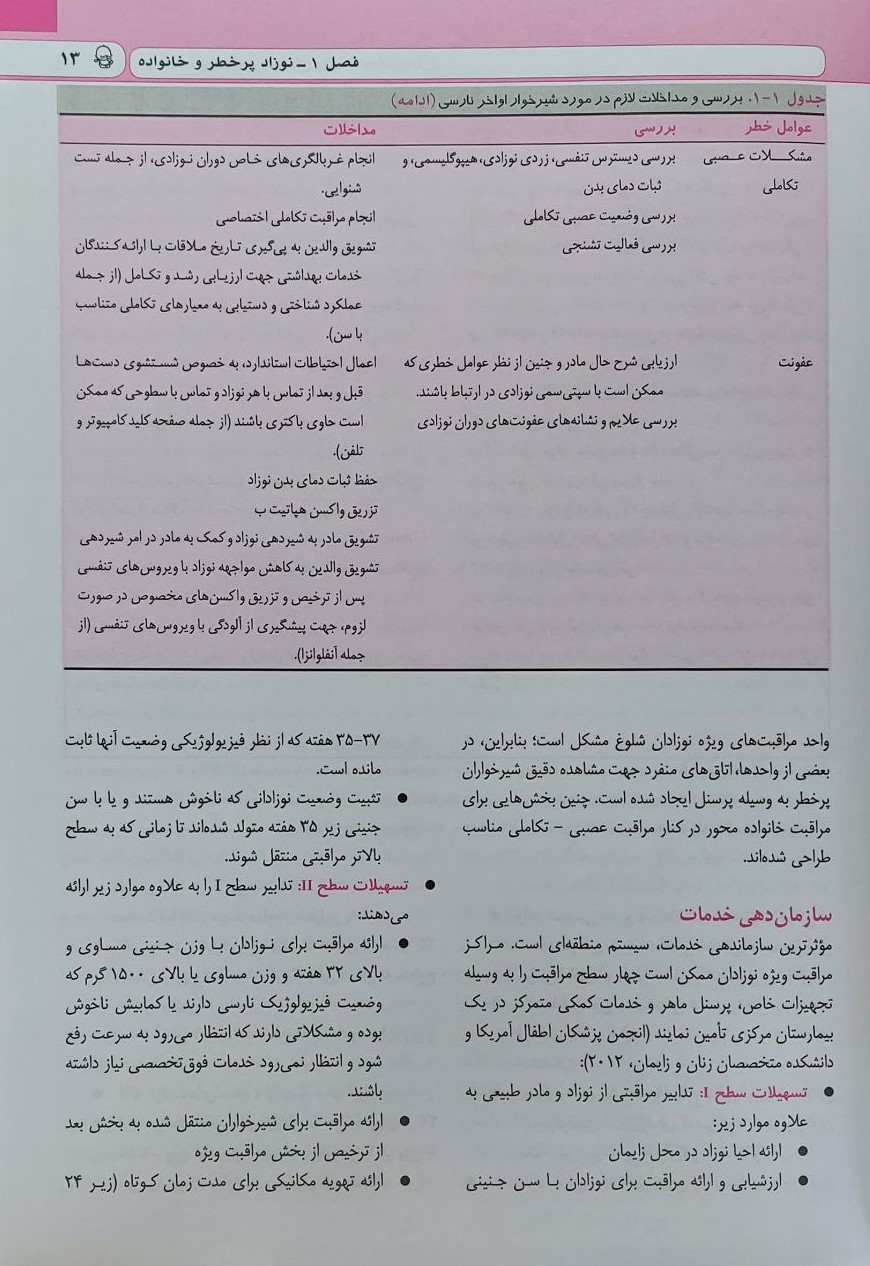 فصل ۱ ـ نوزاد پرخطر و خانواده
۱۳
جدول ۱-۱. بررسی و مداخلات لازم در مورد شیرخوار اواخر نارسی (ادامه)
عوامل خطر
بررسی
مداخلات
مشکـــلات عـــصبی
تکاملی
بررسی دیسترس تنفسی، زردی نوزادی، هیپوگلیسمی، و
ثبات دمای بدن
بررسی وضعیت عصبی تکاملی
بررسی فعالیت تشنجی
انجام غربالگری‌های خاص دوران نوزادی، از جمله تست
شنوایی.
انجام مراقبت تکاملی اختصاصی
تشویق والدین به پی‌گیری تاریخ ملاقات با ارائه‌کنندگان
خدمات بهداشتی جهت ارزیابی رشد و تکامل (از جمله
عملکرد شناختی و دستیابی به معیارهای تکاملی متناسب
با سن).
عفونت
ارزیابی شرح حال مادر و جنین از نظر عوامل خطری که
ممکن است با سپتی‌سمی نوزادی در ارتباط باشند.
بررسی علایم و نشانه‌های عفونت‌های دوران نوزادی
اعمال احتیاطات استاندارد، به خصوص شستشوی دست‌ها
قبل و بعد از تماس با هر نوزاد و تماس با سطوحی که ممکن
است حاوی باکتری باشند (از جمله صفحه کلید کامپیوتر و
تلفن).
حفظ ثبات دمای بدن نوزاد
تزریق واکسن هپاتیت ب
تشویق مادر به شیردهی نوزاد و کمک به مادر در امر شیردهی
تشویق والدین به کاهش مواجهه نوزاد با ویروس‌های تنفسی
پس از ترخیص و تزریق واکسن‌های مخصوص در صورت
لزوم، جهت پیشگیری از آلودگی با ویروس‌های تنفسی (از
جمله آنفلوانزا).
واحد مراقبت‌های ویژه نوزادان شلوغ مشکل است؛ بنابراین، در
بعضی از واحدها، اتاق‌های منفرد جهت مشاهده دقیق شیرخواران
پرخطر به وسیله پرسنل ایجاد شده است. چنین بخش‌هایی برای
مراقبت خانواده محور در کنار مراقبت عصبی - تکاملی مناسب
طراحی شده‌اند.
سازمان‌دهی خدمات
مؤثرترین سازماندهی خدمات، سیستم منطقه‌ای است. مراکز
مراقبت ویژه نوزادان ممکن است چهار سطح مراقبت را به وسیله
تجهیزات خاص، پرسنل ماهر و خدمات کمکی متمرکز در یک
بیمارستان مرکزی تأمین نمایند (انجمن پزشکان اطفال آمریکا و
دانشکده متخصصان زنان و زایمان، ۲۰۱۲):
● تسهیلات سطح I: تدابیر مراقبتی از نوزاد و مادر طبیعی به
علاوه موارد زیر:
● ارائه احیا نوزاد در محل زایمان
● ارزشیابی و ارائه مراقبت برای نوزادان با سن جنینی
۳۵-۳۷ هفته که از نظر فیزیولوژیکی وضعیت آنها ثابت
مانده است.
● تثبیت وضعیت نوزادانی که ناخوش هستند و یا با سن
جنینی زیر ۳۵ هفته متولد شده‌اند تا زمانی که به سطح
بالاتر مراقبتی منتقل شوند.
● تسهیلات سطح II: تدابیر سطح I را به علاوه موارد زیر ارائه
می‌دهند:
● ارائه مراقبت برای نوزادان با وزن جنینی مساوی و
بالای ۳۲ هفته و وزن مساوی یا بالای ۱۵۰۰ گرم که
وضعیت فیزیولوژیک نارسی دارند یا کمابیش ناخوش
بوده و مشکلاتی دارند که انتظار می‌رود به سرعت رفع
شود و انتظار نمی‌رود خدمات فوق‌تخصصی نیاز داشته
باشند.
● ارائه مراقبت برای شیرخواران منتقل شده به بخش بعد
از ترخیص از بخش مراقبت ویژه
● ارائه تهویه مکانیکی برای مدت زمان کوتاه (زیر ۲۴